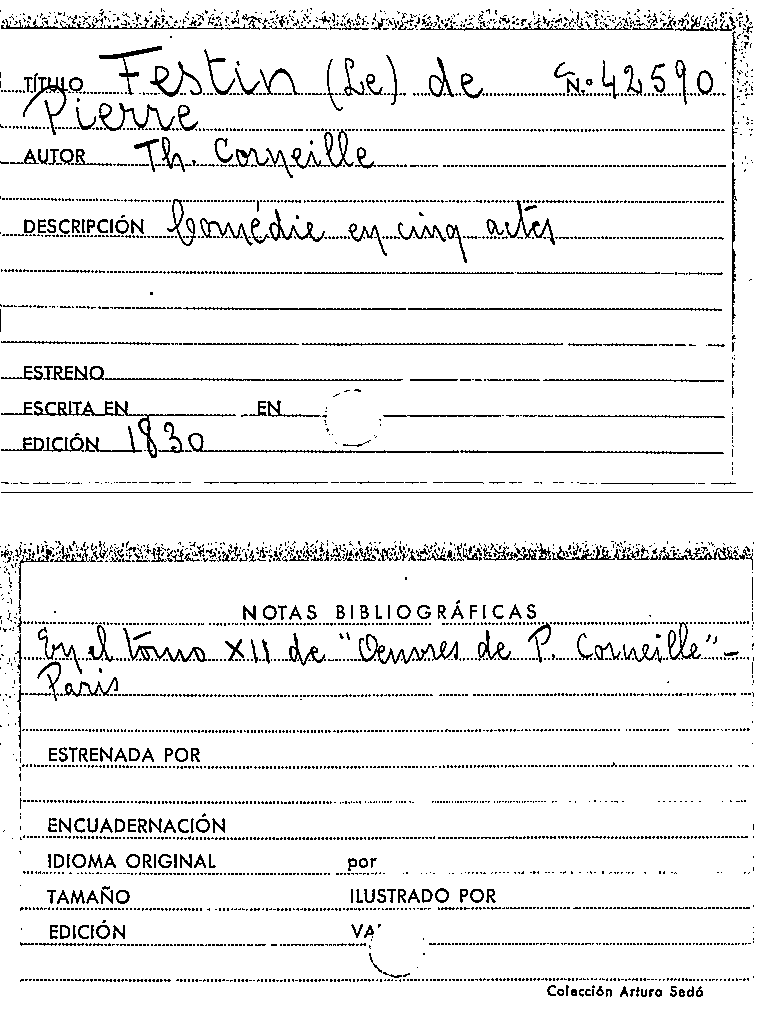 TÍTULO Festin (Le) de N.º 42590
Pierre
AUTOR Th. Corneille
DESCRIPCIÓN Comédie en cinq actes
ESTRENO
ESCRITA EN EN
EDICIÓN 1830
NOTAS BIBLIOGRÁFICAS
En el tomo XII de "Oeuvres de P. Corneille" -
Paris
ESTRENADA POR
ENCUADERNACIÓN
IDIOMA ORIGINAL por
TAMAÑO ILUSTRADO POR
EDICIÓN VA
Colección Arturo Sedó